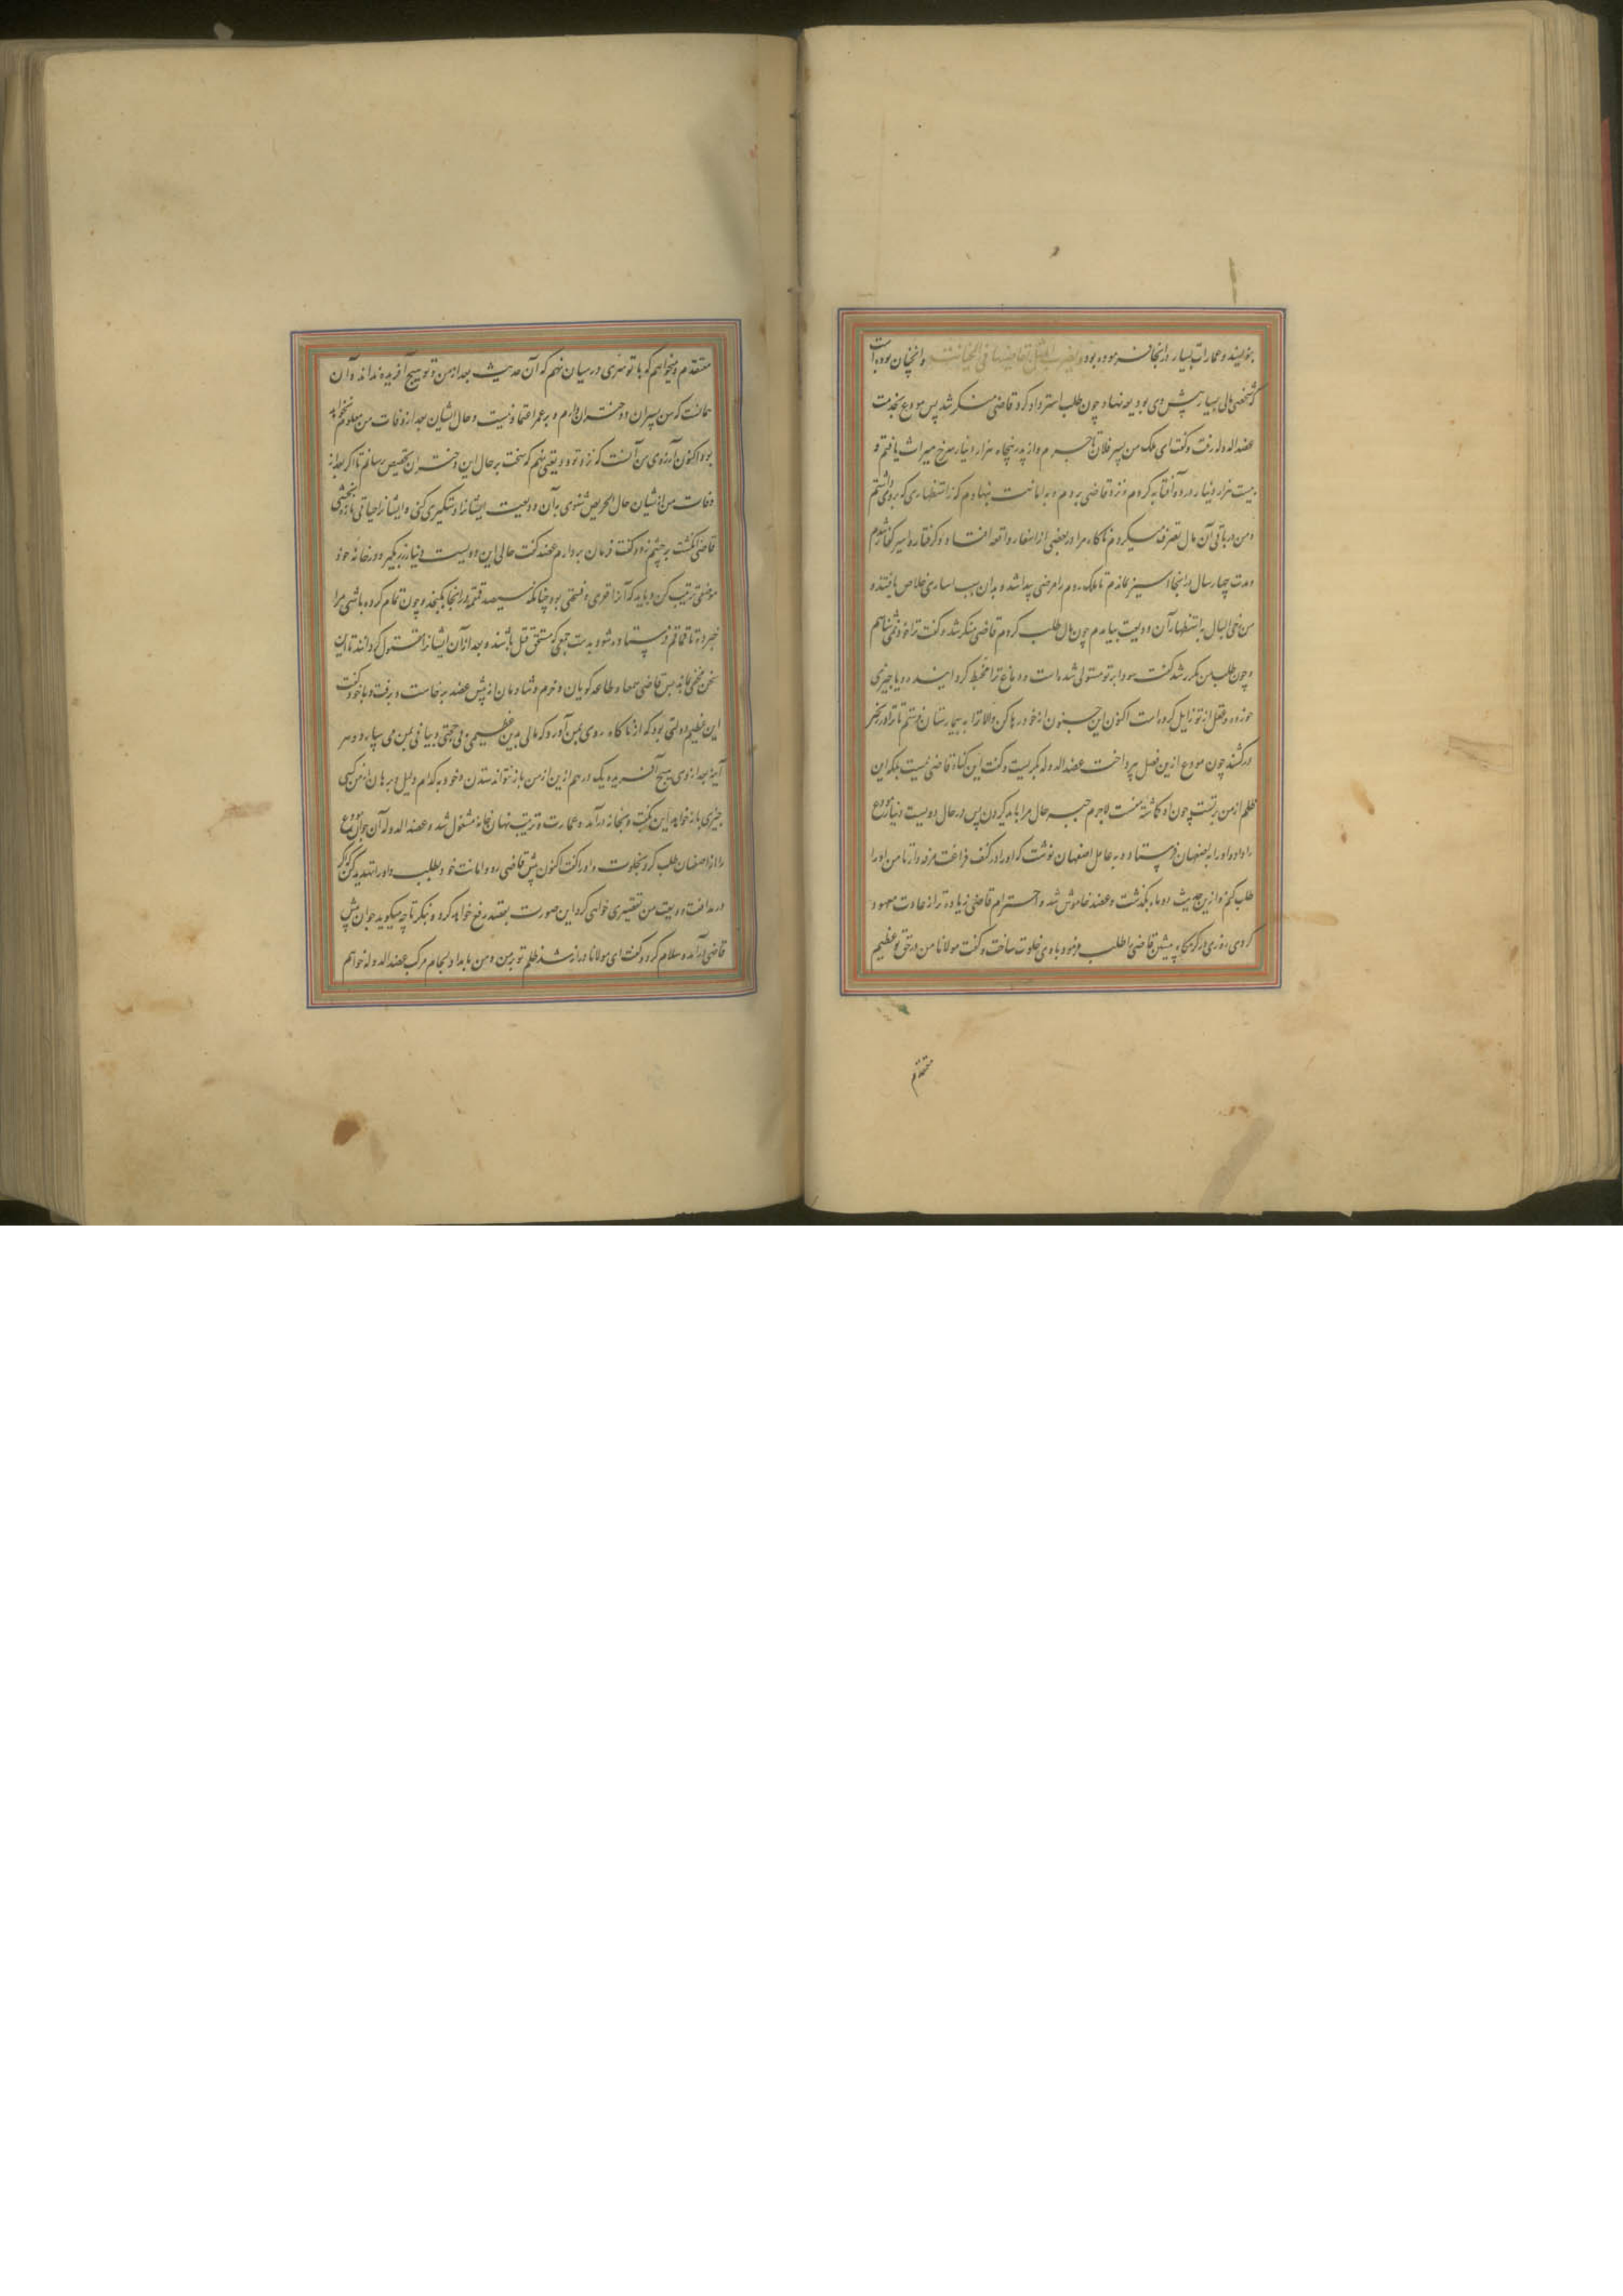 بنوایند و عمارات بسیار در آنجا فرموده بود و یضرب المثل بقاضیها فی الخیانت و آنچنان بوده است
که شخصی مالی بسیار پیش وی بودیعه نهاد و چون طلب استرداد کرد قاضی منکر شد پس مودع بخدمت
عضدالدوله رفت و گفت ای ملک من پسر فلان تاجرم و از پدر پنجاه هزار دینار سرخ میراث یافتم و
بیست هزار دینار در دو آفتابه کردم و نزد قاضی بردم و به امانت بنهادم که از استظهاری که بروی داشتم
و من در باقی آن مال تصرف میکردم ناگاه مرا در بعضی از اسفار واقعه افتاد و گرفتار و اسیر کفار شدم
و مدت چهار سال در آنجا اسیر بماندم تا ملک روم را مرضی پیدا شد و بدان سبب اساری خلاص یافتند و
من رخی البال به استظهار آن ودیعت بیامدم چون مال طلب کردم قاضی منکر شد و گفت ترا خود نمی شناسم
و چون طلب من مکرر شد گفت سودا بر تو مستولی شده است و دماغ ترا مخبط گردانیده و یا چیزی
خورده و عقل از تو زایل کرده است اکنون این جنون از خود رها کن و الا ترا به بیمارستان فرستم تا ترا در زنجیر
درکشند چون مودع ازین فصل بپرداخت عضدالدوله بگریست و گفت این گناه قاضی نیست بلکه این
ظلم از من رفتست چون او گماشته منست لاجرم جبر حال مرا باید کردن پس در حال دویست دینار مودع
را داد و او را به اصفهان فرستاد و به عامل اصفهان نوشت که او را در کنف فراغت مرفه دار تا من او را
طلب کنم و ازین حدیث دو ماه بگذشت و عضد خاموش شد و احترام قاضی زیادت از عادت معهود
کردی روزی در گرمگاه پیشین قاضی را طلب فرمود با وی خلوت ساخت و گفت مولانا من در حق تو عظیم
معتقدم
معتقدم و میخواهم که با تو سری در میان نهم که آن حدیث بعد از من و تو هیچ آفریده نداند و آن
آنست که من پسران و دختران دارم و بر عمر اعتماد نیست و حال ایشان بعد از وفات من معلوم نخواهد
بود اکنون آرزوی من آنست که نزد تو ودیعتی نهم که سخت بر حال این دختران تخصیص رسانم تا اگر بعد از
وفات من از ایشان حال الحریص شنوی بر آن ودیعت ایشان را دستگیری کنی و ایشان را حیاتی تازه بخشی
قاضی انگشت بر چشم زد و گفت فرمان بردارم عضد گفت حالی این دویست دینار زر بگیر و در خانه خود
موضعی ترتیب کن و باید که آنرا قعری و فسحتی بود چنانکه سیصد قمقمه در آنجا بگنجد و چون تمام کرده باشی مرا
خبر ده تا قماقم فرستاده شود به دست جمعی که مستحق قتل باشند و بعد از آن ایشان را مقتول گردانند تا این
سخن مخفی ماند پس قاضی سمعا و طاعه گویان و خرم و شادمان از پیش عضد برخاست و برفت و با خود گفت
این عظیم دولتی بود که از ناگاه روی بمن آورد که مالی بدین عظیمی بی حجتی و بیانی بمن می سپارد و هر
آینه بعد از وی هیچ آفریده یک درهم ازین از من باز نتواند ستدن و خود به کدام دلیل و برهان از من کسی
چیزی باز خواهد این بگفت و بخانه درآمد و بعمارت و ترتیب نهان خانه مشغول شد و عضدالدوله آن جوان مودع
را از اصفهان طلب کرد بخلوت و او را گفت اکنون پیش قاضی رو و امانت خود بطلب و او را تهدید کن که اگر
در مدافعت ودیعت من تقصیری خواهی کرد این صورت بعضد رفع خواهم کرد و بنگر تا چه میگوید جوان پیش
قاضی درآمد و سلام کرد و گفت ای مولانا دراز شد ظلم تو بر من و من بامداد لجام مرکب عضدالدوله خواهم